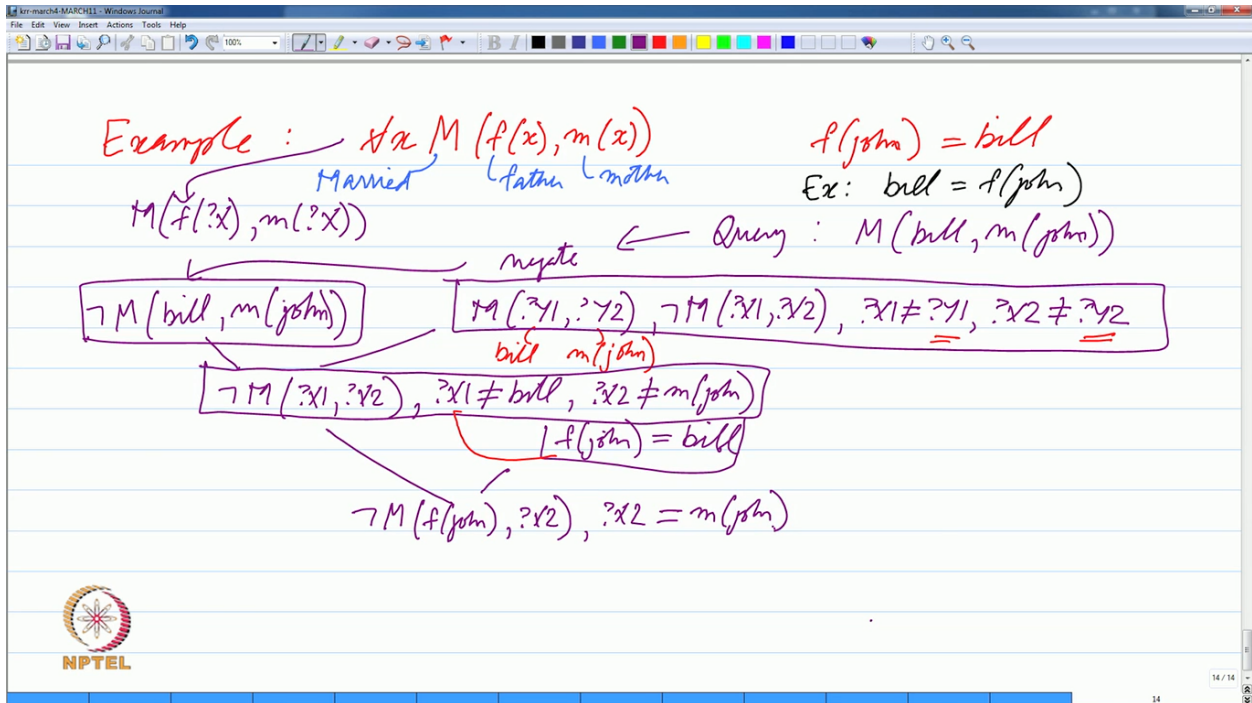 krr-march4-MARCH11 - Windows Journal
File Edit View Insert Actions Tools Help
100%
Example : ∀x M (f(x), m(x))
f(john) = bill
Married father mother
Ex: bill = f(john)
M(f(?x), m(?x))
Query : M(bill, m(john))
negate
¬M(bill, m(john))
M(?Y1, ?Y2), ¬M(?X1, ?X2), ?X1 ≠ ?Y1, ?X2 ≠ ?Y2
bill m(john)
¬M(?X1, ?X2), ?X1 ≠ bill, ?X2 ≠ m(john)
f(john) = bill
¬M(f(john), ?X2), ?X2 = m(john)
NPTEL
14 / 14
14